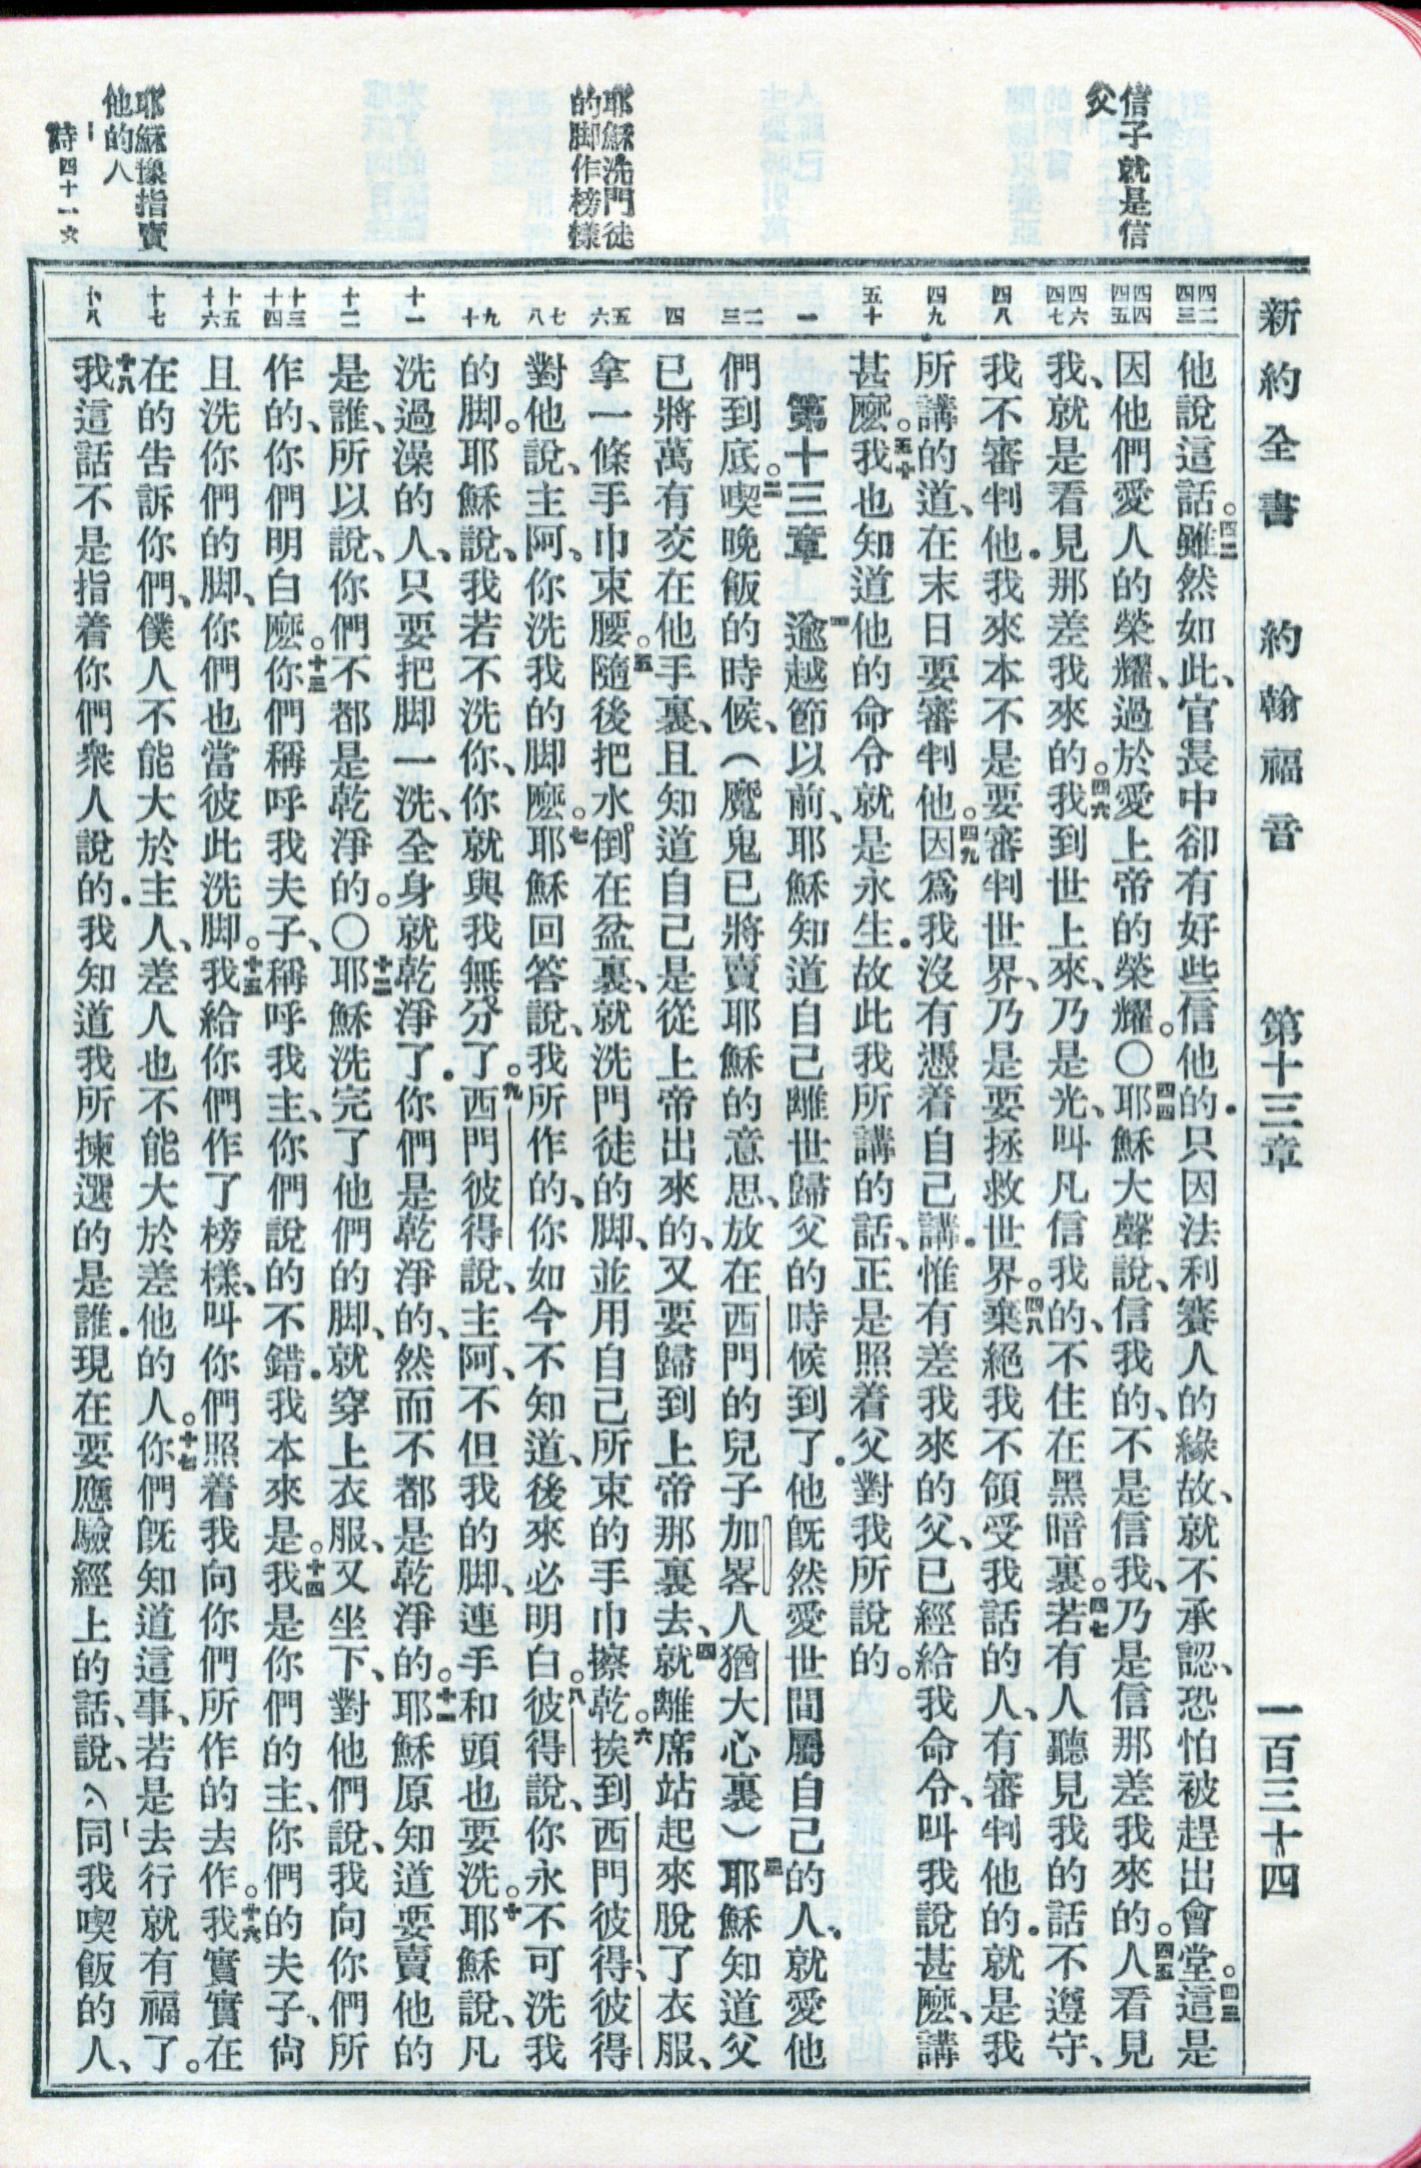 新約全書 約翰福音 第十三章 一百三十四
信子就是信
父
耶穌洗門徒
的脚作榜樣
耶穌豫指賣
他的人
詩四十一 六
四二 四三
四四 四五
四六 四七
四八
四九
五十
一
二 三
四
五 六
七 八
九 十
十一
十二
十三 十四
十五 十六
十七
十八
他說這話。四二雖然如此、官長中卻有好些信他的.只因法利賽人的緣故、就不承認、恐怕被趕出會堂。四三這是
因他們愛人的榮耀、過於愛上帝的榮耀。〇四四耶穌大聲說、信我的、不是信我、乃是信那差我來的。四五人看見
我、就是看見那差我來的。四六我到世上來、乃是光、叫凡信我的、不住在黑暗裏。四七若有人聽見我的話不遵守、
我不審判他.我來本不是要審判世界、乃是要拯救世界。四八棄絕我不領受我話的人、有審判他的.就是我
所講的道、在末日要審判他。四九因爲我沒有憑着自己講.惟有差我來的父、已經給我命令、叫我說甚麽、講
甚麽。五十我也知道他的命令就是永生.故此我所講的話、正是照着父對我所說的。
第十三章 一逾越節以前、耶穌知道自己離世歸父的時候到了.他旣然愛世間屬自己的人、就愛他
們到底。二喫晚飯的時候、（魔鬼已將賣耶穌的意思、放在西門的兒子加畧人猶大心裏）三耶穌知道父
已將萬有交在他手裏、且知道自己是從上帝出來的、又要歸到上帝那裏去、四就離席站起來脫了衣服、
拿一條手巾束腰。五隨後把水倒在盆裏、就洗門徒的脚、並用自己所束的手巾擦乾。六挨到西門彼得、彼得
對他說、主阿、你洗我的脚麽。七耶穌回答說、我所作的、你如今不知道、後來必明白。八彼得說、你永不可洗我
的脚。耶穌說、我若不洗你、你就與我無分了。九西門彼得說、主阿、不但我的脚、連手和頭也要洗。十耶穌說、凡
洗過澡的人、只要把脚一洗、全身就乾淨了.你們是乾淨的、然而不都是乾淨的。十一耶穌原知道要賣他的
是誰、所以說、你們不都是乾淨的。〇十二耶穌洗完了他們的脚、就穿上衣服、又坐下、對他們說、我向你們所
作的、你們明白麽。十三你們稱呼我夫子、稱呼我主、你們說的不錯.我本來是。十四我是你們的主、你們的夫子、尙
且洗你們的脚、你們也當彼此洗脚。十五我給你們作了榜樣、叫你們照着我向你們所作的去作。十六我實實在
在的告訴你們、僕人不能大於主人、差人也不能大於差他的人。十七你們旣知道這事、若是去行就有福了。
十八我這話不是指着你們衆人說的.我知道我所揀選的是誰.現在要應驗經上的話、說、同我喫飯的人、